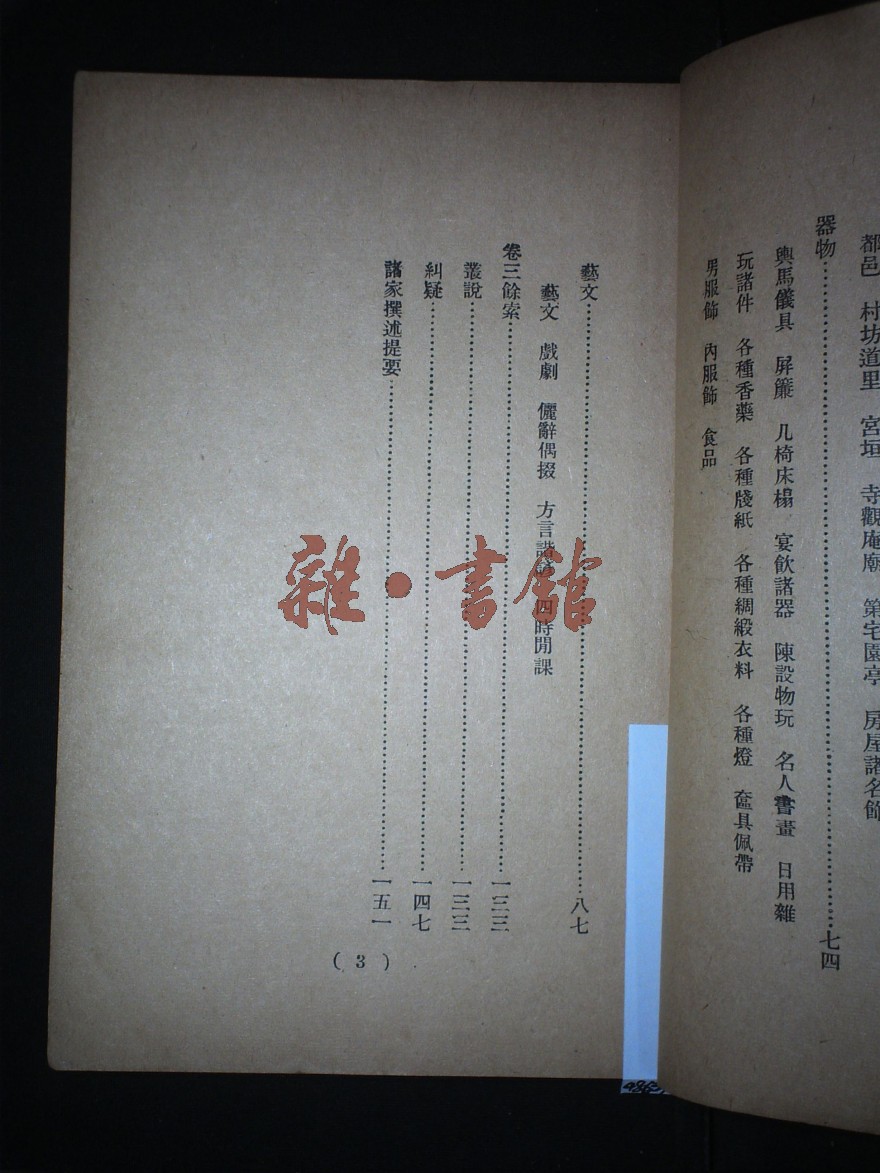 都邑　村坊道里　宮垣　寺觀庵廟　第宅園亭　房屋諸名飾
器物……七四
輿馬儀具　屏簾　几椅床榻　宴飲諸器　陳設物玩　名人書畫　日用雜
玩諸件　各種香藥　各種牋紙　各種綢緞衣料　各種燈　奩具佩帶
男服飾　內服飾　食品
藝文……八七
藝文　戲劇　儷辭偶掇　方言諧謎　四時閒課
卷三餘索……一三三
叢說……一三三
糾疑……一四七
諸家撰述提要……一五一
(3)
雜·書館